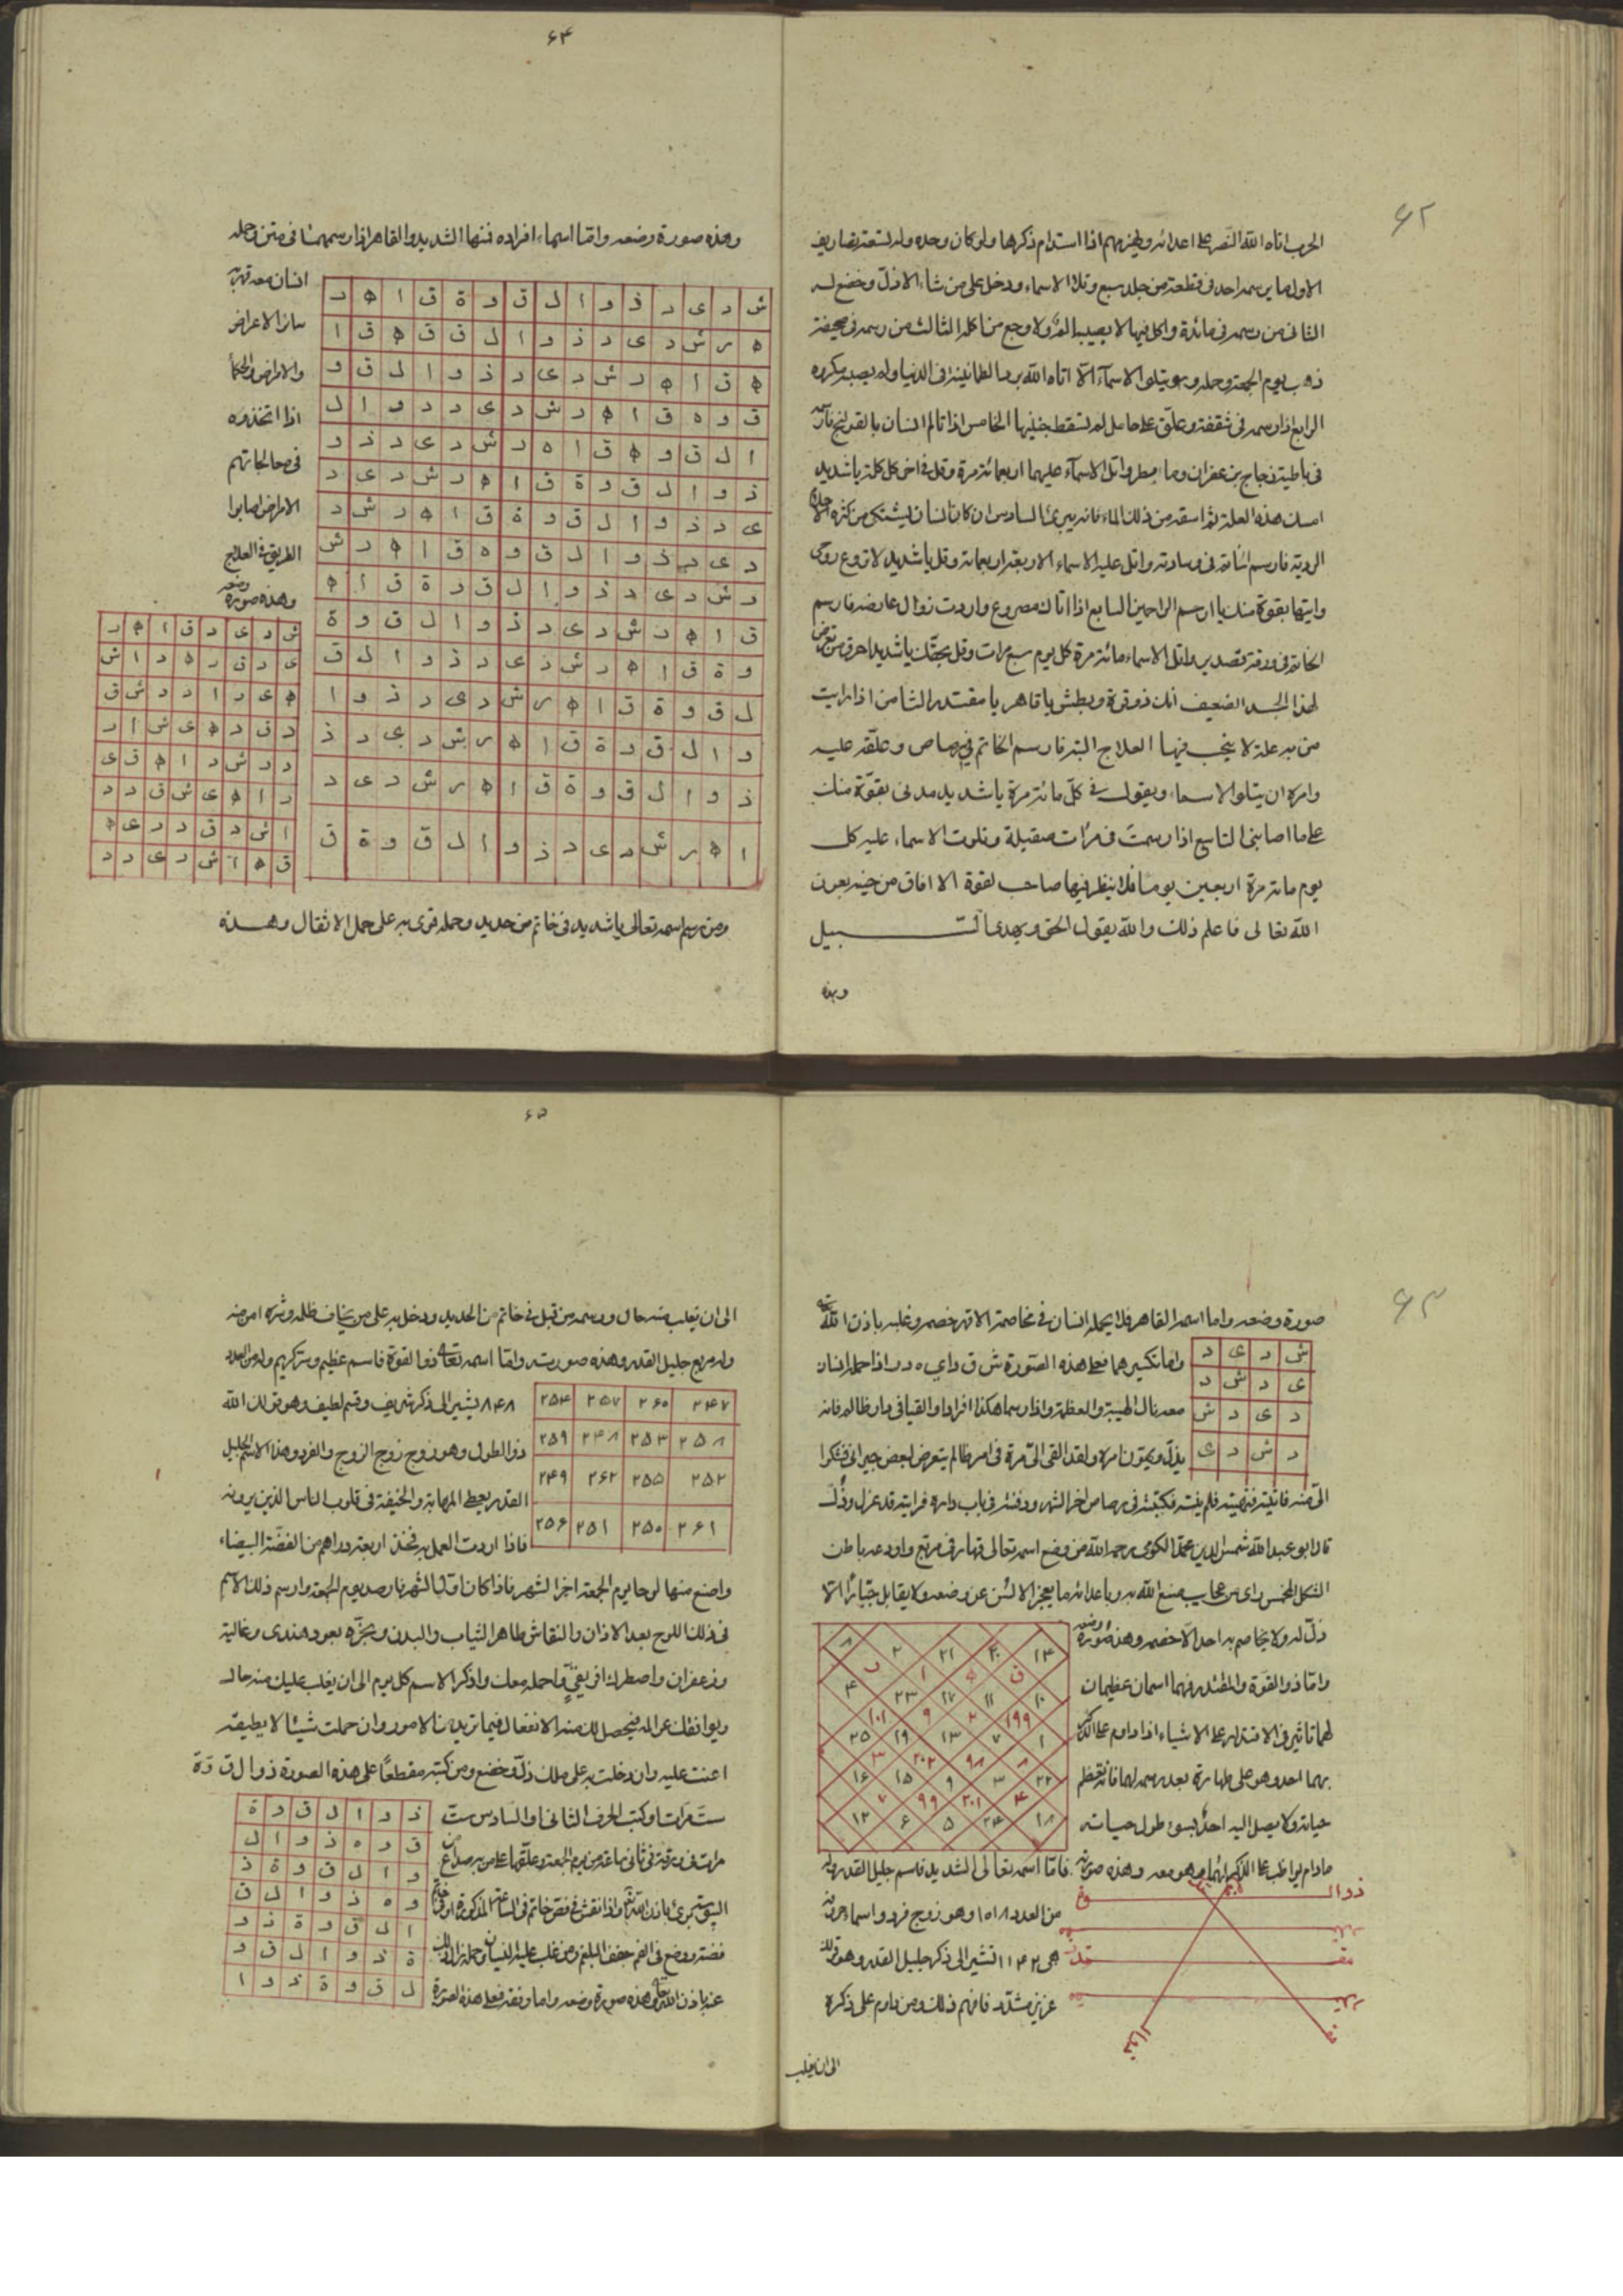 ٦٢
الحرب اتاه الله النصر على اعدائه ويهزمهم اذا استدام ذكرها ولو كان وحده وله تسعة تصاريف
الاول ما يرسمه احد فى قطعة من جلد سبع وتلا الاسماء ودخل على من شاء الا ذل وخضع له
الثانى من رسمه فى مائدة واكل فيها لا يصيبه الم ولا وجع من اكله الثالث من رسمه فى صحيفة
يوم الجمعة وحمله وهو يتلو الاسماء الا اتاه الله بها الطمانينة فى الدنيا ولم يصبه مكروه
الرابع اذا رسمه فى شقفة وعلق على حامل لم تسقط جنينها الخامس اذا تالم انسان بالقولنج
فى باطية زجاج بزعفران وماء مطر واتل الاسماء عليهما اربعمائة مرة وقل فى اخر كل كلمة يا شديد
امسك هذه العلة ثم اسقه من ذلك الماء فانه يبرئ السادس ان كان انسان يشتكى من كثرة
الردية فارسم فى وسادته واتل عليه الاسماء الاربعة اربعمائة وقل يا شديد لا تروع روعى
وايتها بقوة منك يا ارحم الراحمين السابع اذا اتاك مصروع واردت زوال عارضه فارسم
الخاتم فى ورقة واتل الاسماء مائة مرة كل يوم سبع مرات وقل بحقك يا شديد احرق من
لهذا الجسد الضعيف انك ذو قوة وبطش يا قاهر يا مقتدر الثامن اذا رايت
من به علة لا ينجب فيها العلاج البتة فارسم الخاتم فى رصاص وعلقه عليه
وامره ان يتلو الاسماء ويقول فى كل مائة مرة يا شديد مدنى بقوة منك
على ما اصابنى التاسع اذا رسمت فى مرات صقيلة وتلوت الاسماء عليه كل
يوم مائة مرة اربعين يوما فلا ينظر فيها صاحب لقوة الا افاق من حينه بعون
الله تعالى فاعلم ذلك والله يقول الحق ويهدى السبيل
وهذه
٦٤
وهذه صورة وضعه واما اسماء افراده فمنها الشديد والقاهر اذا رسمهما فى متن وحمله
انسان معه
سائر الاعراض
والامراض والحكما
اذا اتخذوه
فى معالجاتهم
الامراض اصابوا
الطريق فى العلاج
وهذه صورة وضعه
ش د ى د ذ و ا ل ق و ة ق ا ه ر
ه ر ش د ى د ذ و ا ل ق و ة ق ا
ة ق ا ه ر ش د ى د ذ و ا ل ق و
ق و ة ق ا ه ر ش د ى د ذ و ا ل
ا ل ق و ة ق ا ه ر ش د ى د ذ و
ذ و ا ل ق و ة ق ا ه ر ش د ى د
ى د ذ و ا ل ق و ة ق ا ه ر ش د
د ى د ذ و ا ل ق و ة ق ا ه ر ش
ر ش د ى د ذ و ا ل ق و ة ق ا ه
ق ا ه ر ش د ى د ذ و ا ل ق و ة
و ة ق ا ه ر ش د ى د ذ و ا ل ق
ل ق و ة ق ا ه ر ش د ى د ذ و ا
و ا ل ق و ة ق ا ه ر ش د ى د ذ
ذ و ا ل ق و ة ق ا ه ر ش د ى د
ا ه ر ش د ى د ذ و ا ل ق و ة ق
ش د ى د ق ا ه ر
ى د ق ر ه د ا ش
ه ى د ا د د ش ق
د ق د ه ى ش ا ر
د د ش د ا ه ق ى
د ا ه ى ش ق د د
ا ش د ق د د ى ه
ق ه ا ش د ى د د
ومن رسم اسمه تعالى يا شديد فى خاتم من حديد وحمله قوى به على حمل الاثقال وهذه
٦٣
صورة وضعه واما اسمه القاهر فلا يحمله انسان فى مخاصمة الا قهر خصمه وغلبه باذن الله
واما تكسيرهما فعلى هذه الصورة ش ق د ا ى ه د ر اذا حمله انسان
معه نال الهيبة والعظمة واذا رسما هكذا افرادا والقيا فى دار ظالم فانه
يذل ويموت امره ولقد القى الى مرة فى امر ظالم يتعرض لبعض جيرانى فشكوا
ش د ى د
ى د ش د
د ى د ش
د ش د ى
الى منه فاتيته فنهيته فلم ينته فكتبته فى رصاص اخر الشهر ودفنته فى باب داره فرايته قد عزل وذل
قال ابو عبد الله شمس الدين محمد الكوفى رحمه الله من وضع اسمه تعالى قهار فى مربع واودعه باطن
الشكل المخمس راى من عجايب صنع الله به وباعدائه ما يعجز الالسن عن وصفه ولا يقابل جبارا الا
ذل له ولا يخاصم به احد الا خصمه وهذه صورة وضعه
واما ذو القوة والمقتدر فهما اسمان عظيمان
لهما تاثير فى الاقتدار على الاشياء اذا داوم على الذكر
بهما احد وهو على طهارة بعد رسمه لهما فانه تعظم
حياته ولا يصل اليه احد بسوء طول حياته
٨ ٢ ٢١ ٢٠ ١٤
ر ا ه ق
٤ ٢٣ ١٧ ١١ ١٠
١٠١ ٩ ٢ ١٩٩
٢٥ ١٩ ١٣ ٧ ١
٣ ٢٠٢ ٩٨ ٨
١٦ ١٥ ٩ ٣ ٢٢
٧ ٩٩ ٢٠١ ٤
١٢ ٦ ٥ ٢٤ ١٨
ما دام يواظب على الذكر بهما وهو معه وهذه صورته فاما اسمه تعالى الشديد فاسم جليل القدر وله
من العدد ١٠١٨ وهو زوج فرد واسماء حروفه
هى ١١٤٢ تشير الى ذكر جليل القدر وهو قولك
عزيز مشدد فافهم ذلك ومن داوم على ذكره
ذوال
مقـ
الى ان يغلب
٦٥
الى ان يغلب منه حال ورسمه من قبل فى خاتم من الحديد ودخل به على من يخاف ظلمه وشره امن منه
وله مربع جليل القدر وهذه صورته واما اسمه تعالى ذو القوة فاسم عظيم وسر كريم وله من العدد
٨٤٨ يشير الى ذكر شريف وقسم لطيف وهو قولك الله
ذو الطول وهو زوج زوج الزوج والفرد وهذا الاسم الجليل
القدر يعطى المهابة والخيفة فى قلوب الناس الذين يرونه
فاذا اردت العمل به فخذ اربعة دراهم من الفضة البيضاء
٢٤٧ ٢٦٠ ٢٥٧ ٢٥٤
٢٥٨ ٢٥٣ ٢٤٨ ٢٥٩
٢٥٢ ٢٥٥ ٢٦٢ ٢٤٩
٢٦١ ٢٥٠ ٢٥١ ٢٥٦
واصنع منها لوحا يوم الجمعة اخر الشهر فاذا كان اول الشهر فارصد يوم الجمعة وارسم ذلك الاسم
فى ذلك اللوح بعد الاذان والنقاش طاهر الثياب والبدن وبخره بعود هندى وغالية
وزعفران واصطرك افريقى واحمله معك واذكر الاسم كل يوم الى ان يغلب عليك منه حال
ويوافقك عوالمه فيحصل لك منه الانفعال فيما تريد من الامور وان حملت شيئا لا يطيقه
اعنت عليه وان دخلت به على ملك ذل وخضع ومن كتبه مقطعا على هذه الصورة ذ و ا ل ق و ة
ست مرات او كتب الحرف الثانى او السادس ست
مرات فى ورقة فى ثانى ساعة من يوم الجمعة وعلقها على من به صداع
برئ باذن الله تعالى واذا نقش فى فص خاتم فى الساعة المذكورة او فى خاتم
فضة ووضع فى الفم خفف البلغم ومن غلب عليه النسيان وحمله زال ذلك
عنه باذن الله تعالى وهذه صورة وضعه واما وفقه فعلى هذه الصورة
ذ و ا ل ق و ة
ق و ة ذ و ا ل
و ا ل ق و ة ذ
و ة ذ و ا ل ق
ا ل ق و ة ذ و
ة ذ و ا ل ق و
ل ق و ة ذ و ا